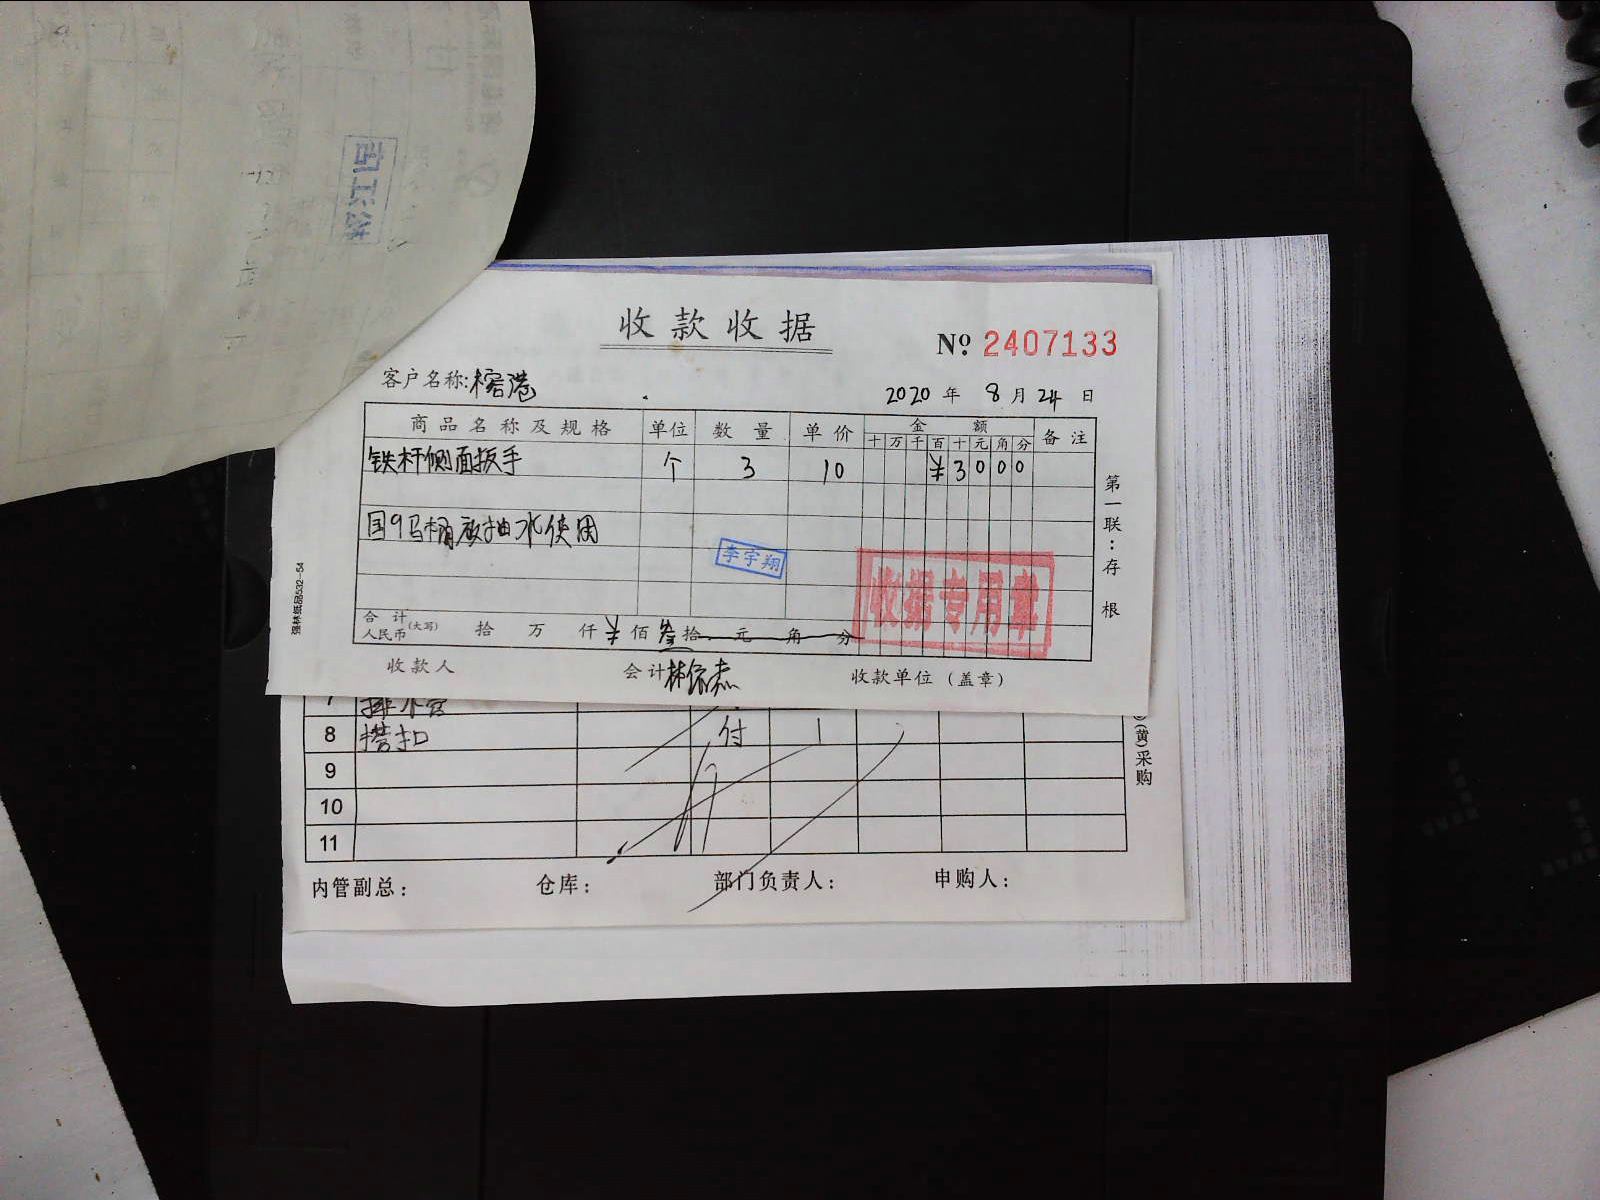 收款收据
№ 2407133
客户名称:榕港
2020 年 8 月 24 日
商品名称及规格 单位 数量 单价 金额 备注
十 万 千 百 十 元 角 分
铁杆侧面扳手 个 3 10 ¥3000
国9马桶 抽水使用
李宇翔
收据专用章
合计 人民币 (大写) 拾 万 仟 ¥ 佰 叁 拾 元 角 分
收款人 会计 林 收款单位(盖章)
第一联:存根
强林纸品532-54
7 排水管
8 搭扣 付 1
9
10
11
(黄)采购
内管副总: 仓库: 部门负责人: 申购人: